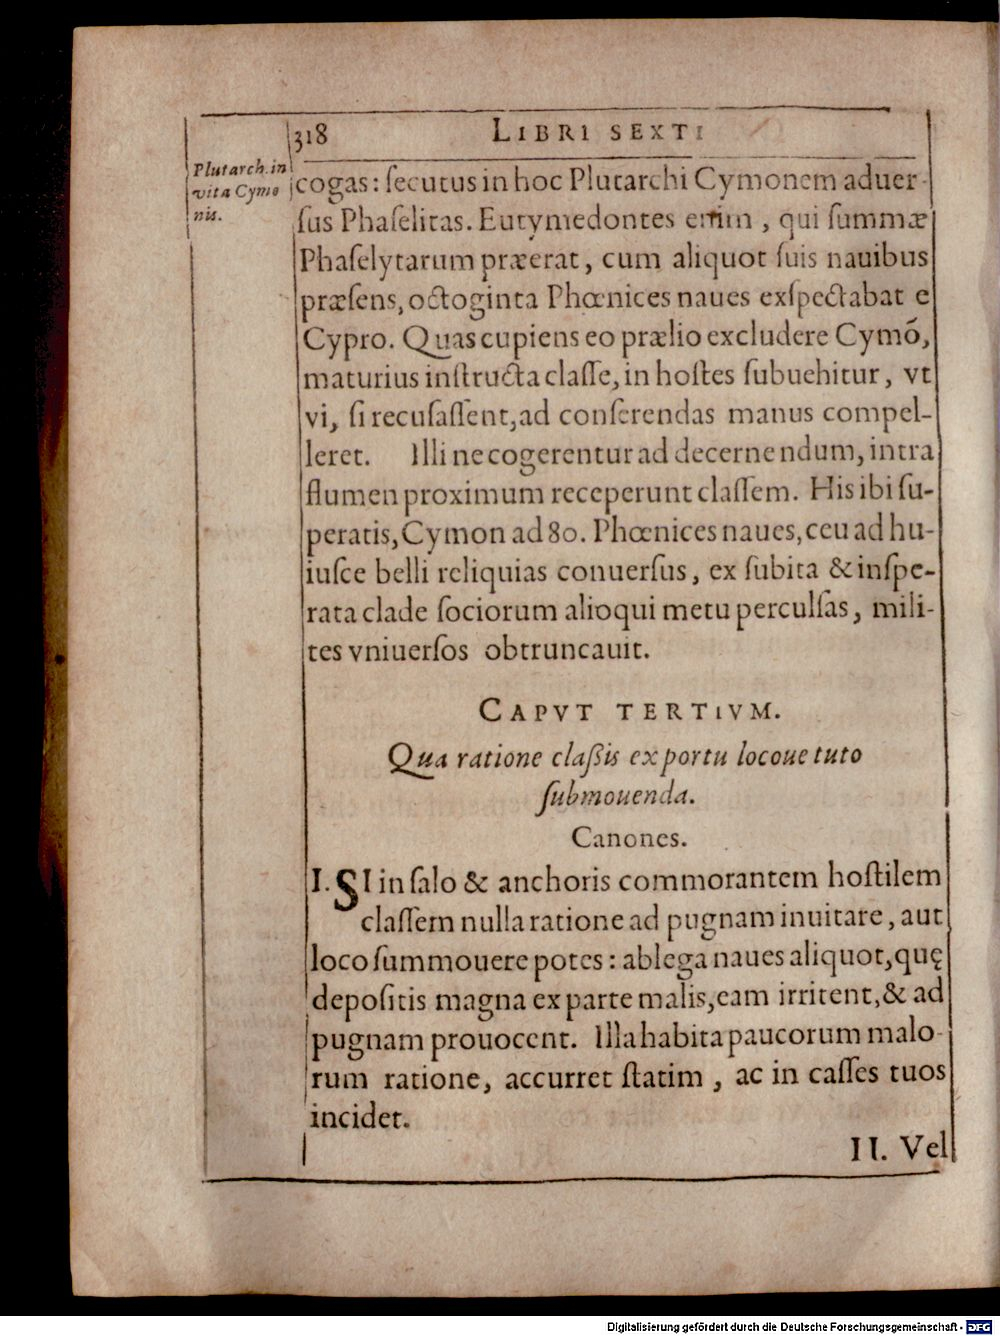 318 LIBRI SEXTI
Plutarch. in
vita Cymo
nis.
cogas: ſecutus in hoc Plutarchi Cymonem aduer-
ſus Phaſelitas. Eutymedontes enim, qui ſummæ
Phaſelytarum præerat, cum aliquot ſuis nauibus
præſens, octoginta Phœnices naues exſpectabat e
Cypro. Quas cupiens eo prælio excludere Cymõ,
maturius inſtructa claſſe, in hoſtes ſubuehitur, vt
vi, ſi recuſaſſent, ad conferendas manus compel-
leret. Illi ne cogerentur ad decernendum, intra
flumen proximum receperunt claſſem. His ibi ſu-
peratis, Cymon ad 80. Phœnices naues, ceu ad hu-
iuſce belli reliquias conuerſus, ex ſubita & inſpe-
rata clade ſociorum alioqui metu perculſas, mili-
tes vniuerſos obtruncauit.
CAPVT TERTIVM.
Qua ratione claßis ex portu locoue tuto
ſubmouenda.
Canones.
I. SI in ſalo & anchoris commorantem hoſtilem
claſſem nulla ratione ad pugnam inuitare, aut
loco ſummouere potes: ablega naues aliquot, quę
depoſitis magna ex parte malis, eam irritent, & ad
pugnam prouocent. Illa habita paucorum malo-
rum ratione, accurret ſtatim, ac in caſſes tuos
incidet.
II. Vel
Digitalisierung gefördert durch die Deutsche Forschungsgemeinschaft - DFG